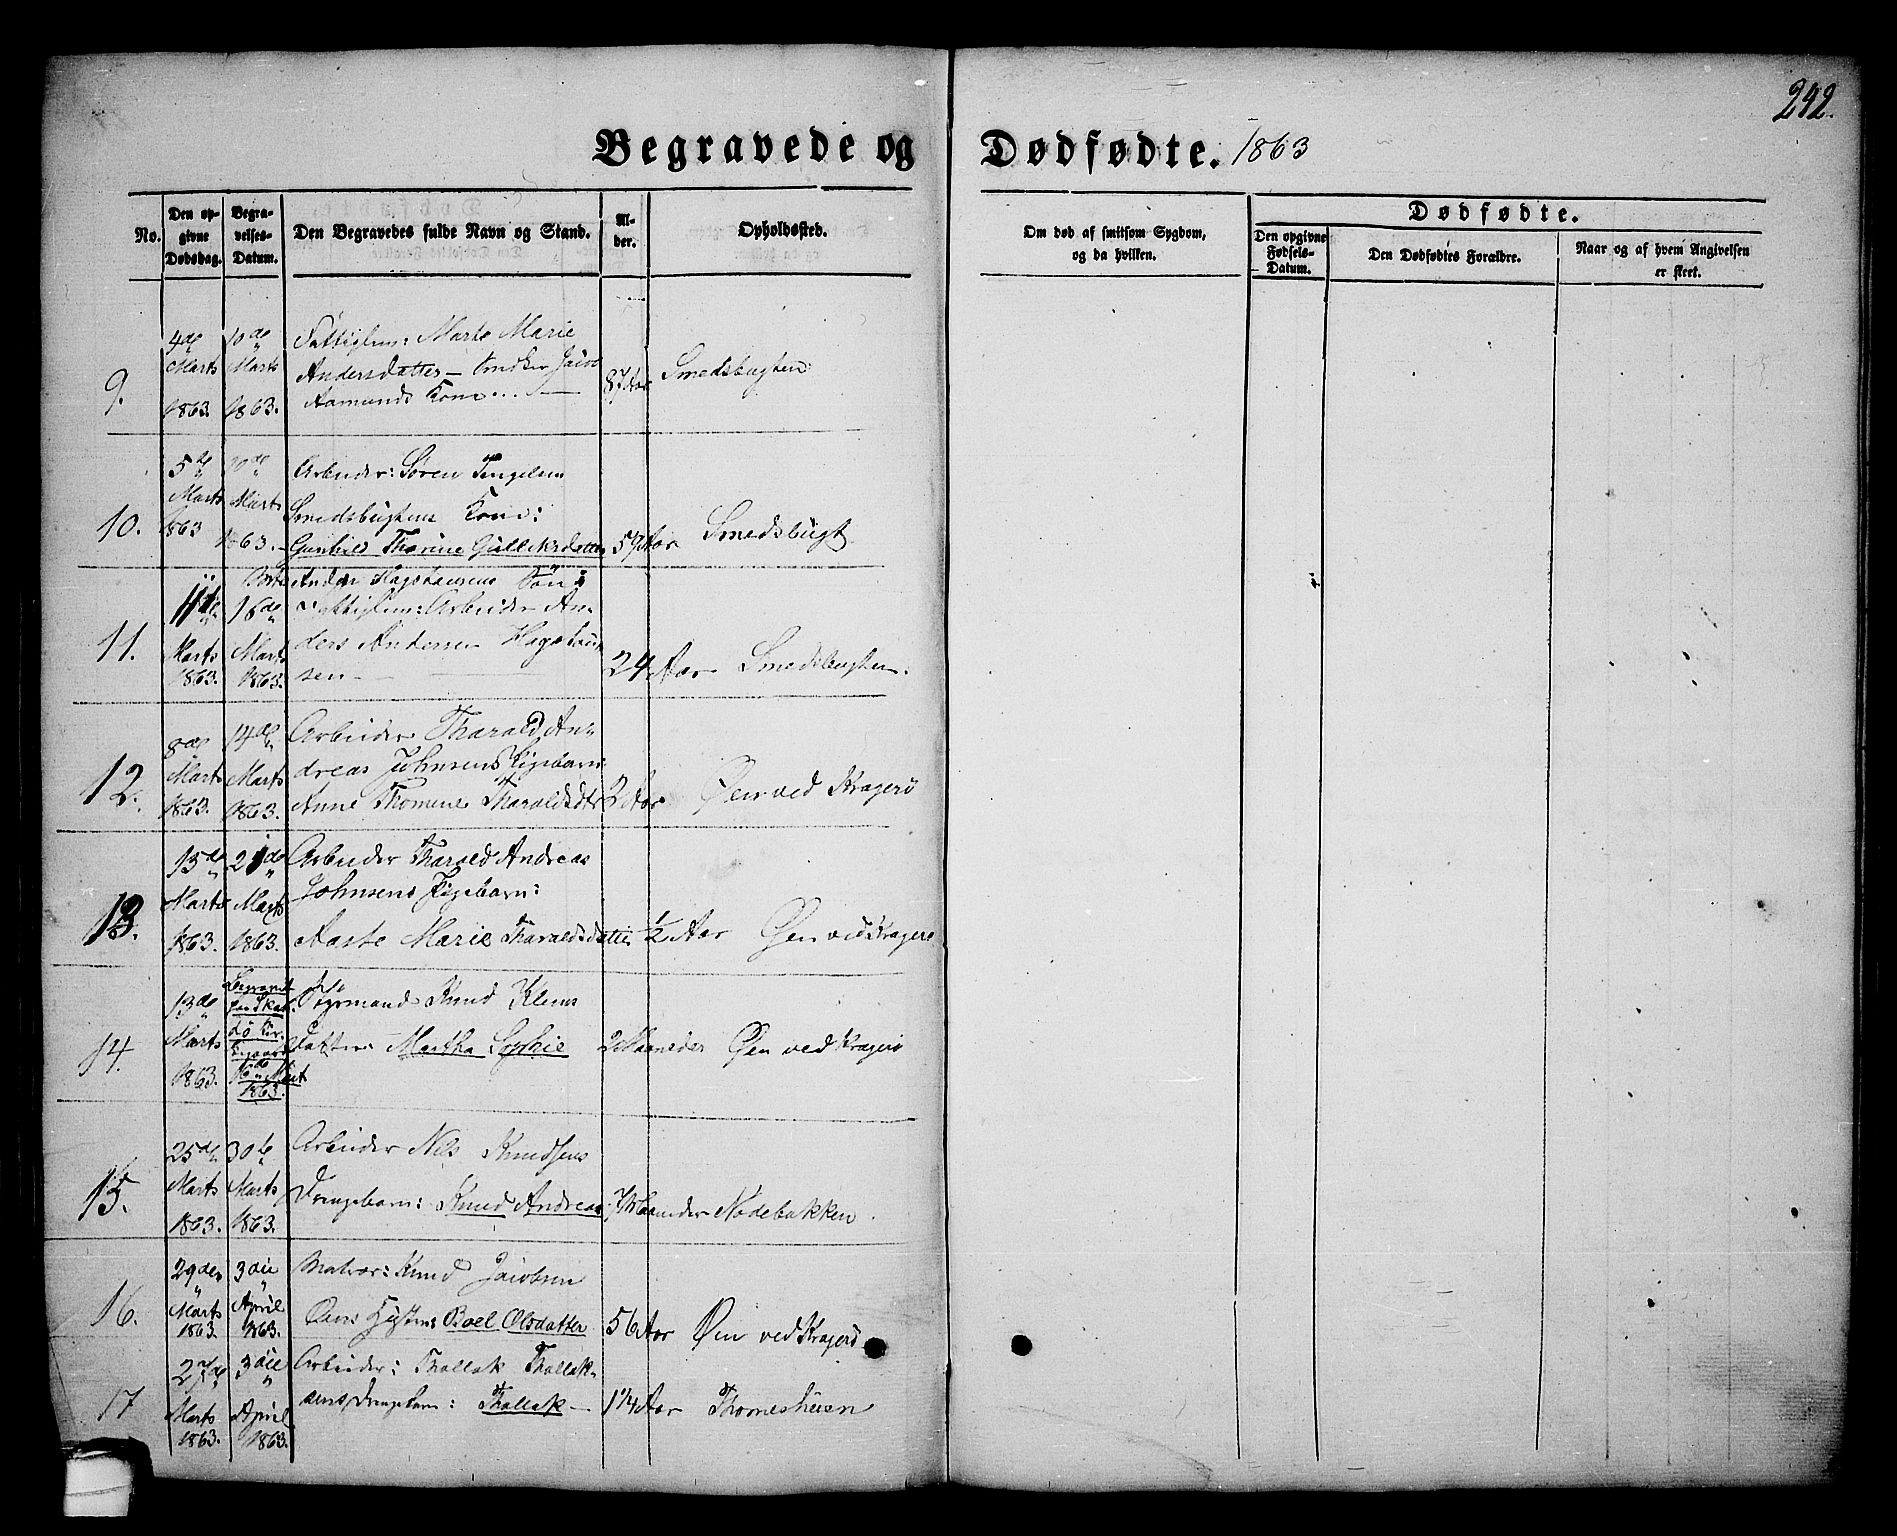 242.
Begravede og Dødfødte. 1863
No.
Den opgivne Dødsdag.
Begravelses-Datum.
Den Begravedes fulde Navn og Stand.
Alder.
Opholdssted.
Om død af smitsom Sygdom, og da hvilken.
Dødfødte.
Den opgivne Fødsels-Datum.
Den Dødfødtes Forældre.
Naar og af hvem Angivelsen er skeet.
9.
4de Marts 1863.
10de Marts 1863.
Fattiglem: Marte Marie
Andersdatter — Jacob
Aamunds Kone...
87 Aar
Smedsbugten
10.
5te Marts 1863
10de Marts 1863.
Arbeider: Søren Tengelsen
Smedsbugtens Kone:
Gunhild Thorine Gulleksdatter
59 Aar
Smedsbugt
11.
11te Marts 1863.
16de Marts 1863.
Anders Hagstuesens Søn:
Fattiglem: Arbeider An-
ders Andersen Hagstue-
sen
24 Aar
Smedsbugten.
12.
8de Marts 1863.
14de Marts 1863.
Arbeider Tharald An-
dreas Johnsens Pigebarn:
Anne Thomine Tharaldsdtr
2 Aar
Øen ved Kragerö
13.
15de Marts 1863.
21de Marts 1863.
Arbeider Tharald Andreas
Johnsens Pigebarn:
Aaste Marie Tharaldsdatter
1/2 Aar
Øen ved Kragerö
14.
13de Marts 1863.
Begravet
paa Skat-
tö Kir-
kegaard
16de Mart
1863.
Sjömand Knud Klems
Datter: Martha Sophie
2 Maaneder
Øen ved Kragerö
15.
25de Marts 1863.
30te Marts 1863.
Arbeider Nils Knudsens
Drengebarn: Knud Andreas
7 Maaneder
Nødebakken.
16.
29de Marts 1863.
3die April 1863.
Matros: Knud Jacobsen
Øens Hustru Boel Olsdatter
56 Aar
Øen ved Kragerö
17
27de Marts 1863.
3die April 1863.
Arbeider: Thollak Thollak-
sens Drengebarn: Thollak —
1 1/4 Aar
Thomeshuen